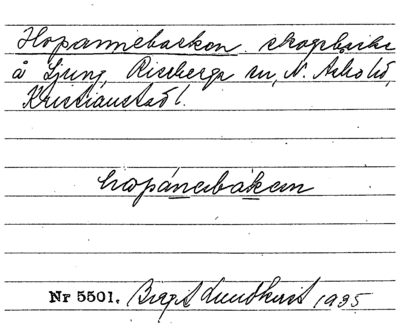 Hopannebacken skogsbacke
å Ljung, Riseberga sn, N. Åsbo hd,
Kristianstads l.
hωpánəbakən
Nr 5501. Birgit Lundkvist 1935